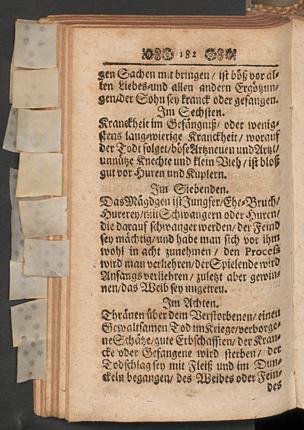 182
gen Sachen mit bringen / ist böß vor al-
len Liebes- und allen andern Ergötzun-
gen / der Sohn sey kranck oder gefangen.
Im Sechsten.
Kranckheit im Gefängniß / oder wenig-
stens langwierige Kranckheit / worauf
der Todt folget / böse Artzneuen und Artzt /
unnütze Knechte und klein Vieh / ist bloß
gut vor Huren und Kuplern.
Im Siebenden.
Das Mägdgen ist Jungfer / Ehe-Bruch /
Hurerey / mit Schwangern oder Huren /
die darauf schwanger werden / der Feind
sey mächtig / und habe man sich vor ihm
wohl in acht zunehmen / den Process
wird man verliehren / der Spielende wird
Anfangs verliehren / zuletzt aber gewin-
nen / das Weib sey ungetreu.
Im Achten.
Thränen über dem Verstorbenen / einen
Gewaltsamen Tod im Kriege / verborge-
ne Schätze / gute Erbschafften / der Kran-
cke oder Gefangene wird sterben / der
Todschlag sey mit Fleiß und im Dun-
ckeln begangen / des Weibes oder Fein-
des